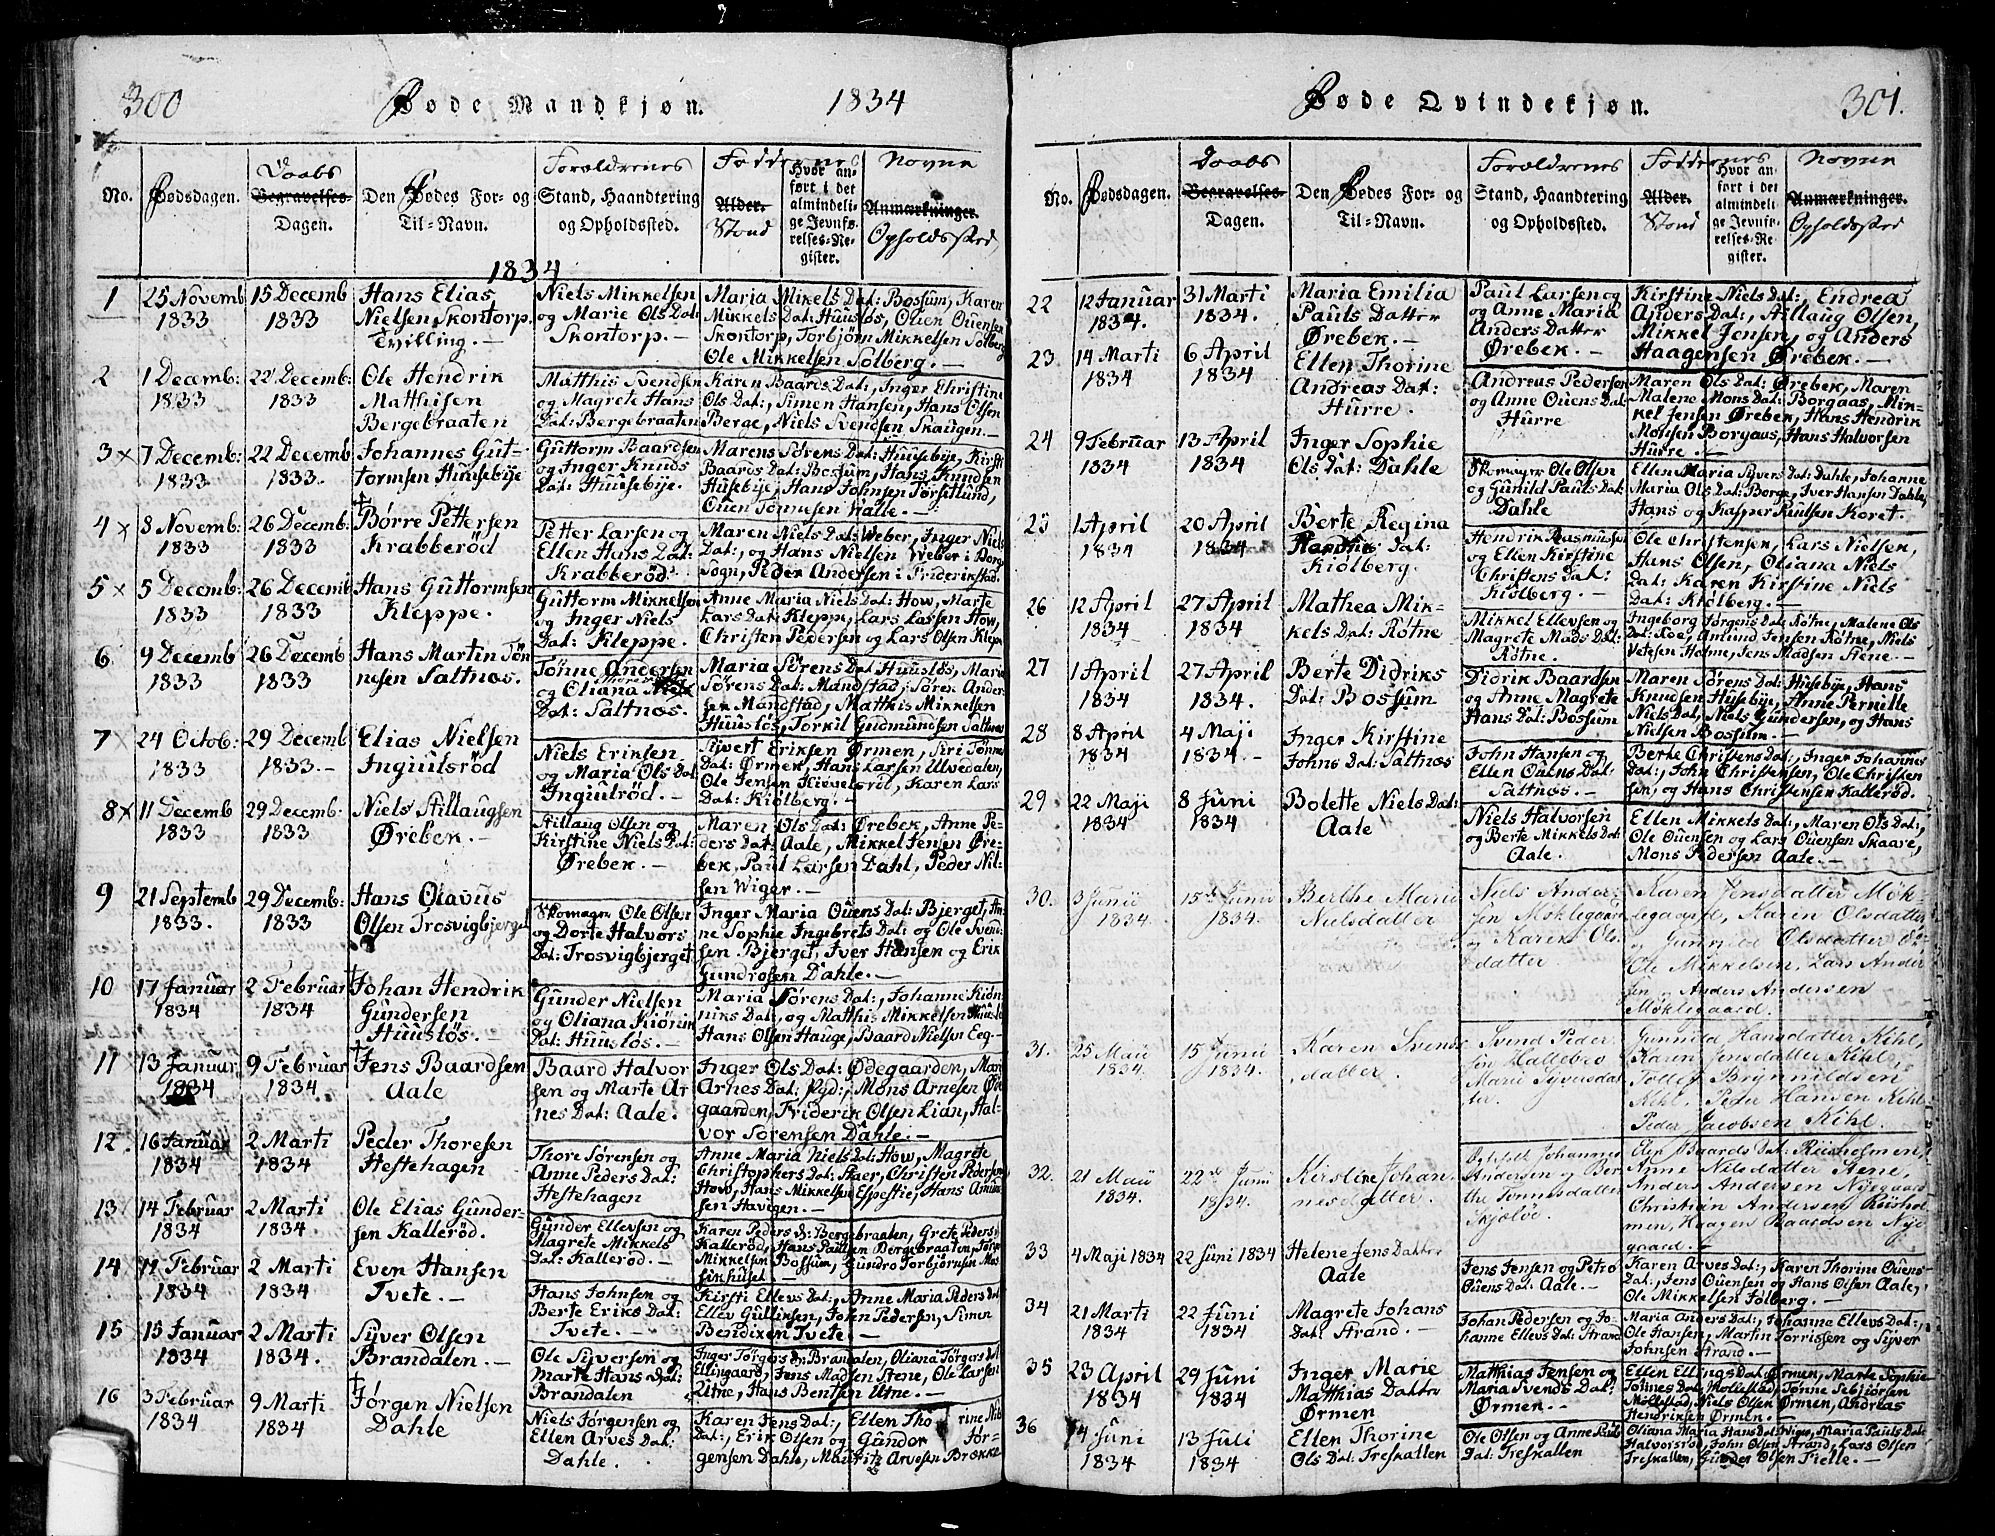 300 Fødte Mandkjøn. 1834
No. Fødsdagen. Daabs Begravelses= Dagen. Den Fødes For= og Til=Navn. Forældrenes Stand, Haandtering og Opholdssted. Alder. Stand Hvor anført i det almindelige Jevnførelses=Register. Navne Anmærkninger. Opholdssted
1834
1 25 Novemb 1833 15 Decemb 1833
Hans Elias
Nielsen Skontorp.
Tvilling. —
Niels Mikkelsen
og Marie Ols Dat:
Skontorp. —
Maria Mikels Dat: Bossum, Karen
Mikkels Dat: Huusløs, Ouen Ouensen
Skontorp, Torbjørn Mikkelsen Solberg
Ole Mikkelsen Solberg. —
2 1 Decemb: 1833 22 Decemb: 1833
Ole Hendrik
Mathisen
Bergebraaten
Matthis Svendsen
og Magrete Hans
Dat: Bergebraaten
Karen Baards Dat:, Inger Christine
Ols Dat:, Simen Hansen, Hans Olsen
Berge, Niels Svendsen Skaugen. —
3 x 7 Decemb: 1833 22 Decemb: 1833.
Johannes Gut-
tormsen Huusebÿe
Guttorm Baardsen
og Inger Knuds
Dat: Huusebÿe.
Marens Sørens Dat: Huusebÿe, Kirsti
Baards Dat: Bossum, Hans Knudsen
Husebÿe, Hans Johnsen Torsetlund,
Ouen Tønnesen Walle. —
4 x 8 Novemb: 1833 26 Decemb: 1833
Børre Pettersen
Krabberød
Petter Larsen og
Ellen Hans Dat:
Krabberød:
Maren Niels Dat: Weber, Inger Niels
Dat:, og Hans Nielsen Weber i Borge
Sogn, Peder Andersen i Friderikstad.
5 x 5 Decemb: 1833 26 Decemb 1833
Hans Guttormsen
Kleppe.
Guttorm Mikkelsen
og Inger Niels
Dat: Kleppe.
Anne Maria Niels Dat: How, Marte
Lars Dat: Klepp, Lars Larsen How,
Christen Pedersen og Lars Olsen Klepp
6 9 Decemb 1833 26 Decemb 1833
Hans Martin Tøn
nesen Saltnøs.
Tønne Andersen
og Oliana
Dat: Saltnøs.
Maria Sørens Dat Huusløs, Maria
Sørens Dat: Mandstad, Søren Ander
sen Mandstad, Matthis Mikkelsen
Huusløs, Torkil Gudmundsen Saltnøs
7 24 Octob: 1833 29 Decemb 1833. —
Elias Nielsen
Ingiulsrød
Niels Eriksen
og Maria Ols Dat
Ingiulrød. —
Sÿvert Eriksen Ørmen, Siri Tønne
Dat: Ørmen, Hans Larsen Ulvedalen,
Ole Jensen Kievelsrød, Karen Lars
Dat: Kiølberg. —
8 x 11 Decemb 1833 29 Decemb: 1833
Niels Stillaugsen
Ørebek. —
Stillaug Olsen og
Kirstine Niels Dat:
Ørebek. —
Maren Ols Dat: Ørebek, Anne Pe-
ders Dat: Aale, Mikkel Jensen Øre-
bek, Paul Larsen Dahl, Peder Nil-
sen Wiger. —
9 21 Septemb 1833. 29 Decemb: 1833
Hans Olavus
Olsen Trosvigbjerget
Skomager Ole Olsen
og Dorte Halvors
Dat: Trosvigbjerget
Inger Maria Ouens Dat: Bjerget, An-
ne Sophie Ingebrets Dat: og Ole Svend
sen Bjerget, Iver Hansen og Erik
Gundrosen Dahle. —
10 17 Januar 1834 2 Februar 1834
Johan Hendrik
Gundersen
Huusløs
Gunder Nielsen
og Oliana Kiønik
Dat: Huusløs.
Maria Sørens Dat:, Johanne Kiøn
niks Dat:, og Matthis Mikkelsen Huusløs
Hans Olsen Hauge, Baard Nielsen Eeg —
11 13 Januar 1834 9 Februar 1834
Jens Baardsen
Aale
Baard Halvor
sen og Marte Ar
nes Dat: Aale.
Inger Ols Dat: Ødegaarden, Mari
Arnes Dat: Rød; Mons Arnesen Øde
gaarden, Friderik Olsen Lian, Hal-
vor Sørensen Dahle. —
12. 16 Januar 1834 2 Marti 1834
Peder Thoresen
Hestehagen
Thore Sørensen og
Anne Peders Dat:
Hestehagen
Anne Maria Niels Dat: How, Magrete
Christophers Dat: Skaer, Christen Pedersen
How, Hans Mikkelsen Espestie, Hans Amun
sen Havigen. —
13 14 Februar 1834 2 Marti 1834
Ole Elias Gunder-
sen Kallerød.
Gunder Ellevsen og
Magrete Mikkels
Dat: Kallerød. —
Karen Peders D: Bergebraaten, Grete Peders D:
Kallerød, Hans Paulsen Bergebraaten, Torger
Mikkelsen Bossum, Gundro Torbjørnsen Mos
sikhuset —
14 11 Februar 1834 2 Marti 1834
Even Hansen
Tvete. —
Hans Johnsen og
Berte Eriks Dat:
Tvete. —
Kirsti Ellevs Dat:, Anne Maria Peders Dat
Ellev Gulliksen, John Pedersen, Simen
Bendixen Tvete. —
15 15 Januar 1834 2 Marti 1834.
Sÿver Olsen
Brandalen. —
Ole Sÿversen og
Marte Hans Dat:
Brandalen
Inger Tørgers D: Brandalen, Oliana Tørgers Dat
Ellingaard, Jens Madsen Stene, Ole Larsen
Utne, Hans Bentsen Utne. —
16 3 Februar 1834 9 Marti 1834
Jørgen Nielsen
Dahle
Niels Jørgensen og
Ellen Arves Dat:
Dahle.
Karen Jens Dat:, Ellen Thorine Nils
Dat:, Erik Olsen og Gunder Jør-
gensen Dahle, Mauritz Arvesen Brække
Fødte Qvindekjøn. 301.
No. Fødsdagen. Daabs Begravelses= Dagen. Den Fødes For= og Til=Navn. Forældrenes Stand, Haandtering og Opholdssted. Alder. Stand Hvor anført i det almindelige Jevnførelses=Register. Navne Anmærkninger. Opholdssted
22 12 Januar 1834. 31 Marti 1834.
Maria Emilia
Pauls Datter
Ørebek. —
Paul Larsen og
og Anne Maria
Anders Datter
Ørebek. —
Kirstine Niels Dat:, Endrea
Anders Dat:, Stillaug Olsen,
Mikkel Jensen, og Anders
Haagensen Ørebek. —
23 14 Marti 1834 6 April 1834
Ellen Thorine
Andreas Dat:
Hurre.
Andreas Pedersen
og Anne Ouens Dat
Hurre
Maren Ols Dat: Ørebek, Maren
Malene Mons Dat: Borgaas, Mik-
kel Jensen Ørebek, Hans Hendrik
Monsen Borgaas, Hans Halvorsen
Hurre. —
24 9 Februar 1834 13 April 1834
Inger Sophie
Ols Dat: Dahle
Skomager Ole Olsen
og Gunild Pauls Dat
Dahle
Ellen Maria Sÿvers Dat: Dahle, Johanne
Maria Ols Dat: Borge, Iver Hansen Dahle,
Hans og Kasper Paulsen Koret.
25 1 April 1834 20 April 1834
Berte Regina
Handriks Dat:
Kiølberg.
Hendrik Rasmussen
og Ellen Kirstine
Christens Dat:
Kiølberg. —
Ole Christensen, Lars Nielsen,
Hans Olsen, Oliana Niels
Dat: Karen Kirstine Niels
Dat: Kiølberg. —
26 12 April 1834 27 April 1834
Mathea Mik-
kels Dat: Røtne
Mikkel Ellevsen og
Magrete Mads Dat:
Røtne.
Ingeborg Jørgens Dat: Røtne, Malene Ols
Dat: Roe, Amund Jensen Røtne, Niels
Vetesen Holme, Jens Madsen Stene. —
27 1 April 1834 27 April 1834.
Berte Didriks
Dat: Bossum
Didrik Baardsen
og Anne Magrete
Hans Dat: Bossum
Maren Sørens Dat: Husebÿe, Hans
Knudsen Husebÿe, Anne Pernille
Niels Dat, Niels Gundersen, og Hans
Nielsen Bossum. —
28 8 April 1834 4 Maji 1834. —
Inger Kirstine
Johns Dat: Saltnøs
John Hansen og
Ellen Ouens Dat:
Saltnøs. —
Berte Christens Dat:, Inger Johannes
Dat:, John Christensen, Ole Christen
sen, og Hans Christensen Kallerød.
29 22 Maji 1834 8 Juni 1834
Bolette Niels Dat:
Aale
Niels Halvorsen
og Berte Mikkels Dat:
Aale.
Ellen Mikkels Dat:, Maren Ols Dat:,
Ole Ouensen og Lars Ouensen Skaare,
Mons Pedersen Aale. —
30. 3 Junii 1834. 15de Junii 1834.
Berthe Marie
Nielsdatter
Niels Ander-
sen Møklegaard
og Karen Ols-
datter
Karen Jensdatter Møk-
legaard, Karen Olsdatter
og Gunnild Olsdatter
Ole Mikkelsen, Lars Ander
sen og Anders Andersen
Møklegaard.
31. 25 Maii 1834. 15 Junii 1834.
Karen Svends
datter.
Svend Peder
sen Hallebro
Marie Syversdat
ter.
Gunnild Hansdatter Kihl,
Karen Jensdatter Kihl
Tollef Brynnildsen
Kihl, Peder Hansen Kihl
Peder Jacobsen Kihl.
32. 21 Maii 1834. 22de Junii 1834.
Kirstine Johan-
nesdatter.
Johannes
Andersen og Ber
the Tønnesdatter
Skjæløe.
Elen Baards Dat: Riisholmen,
Anne Nilsdatter Stene,
Anders Andersen Nÿegaard
Christian Andersen Riishol
men, Haagen Baardsen Nÿe
gaard. —
33 4 Maji 1834 22 Juni 1834
Helene Jens Datter
Aale
Jens Jensen og Petro
Ouens Dat: Aale.
Karen Arves Dat:, Karen Thorine Ouens
Dat:, Jens Ouensen og Hans Olsen Aale,
Ole Mikkelsen Solberg. —
34 21 Marti 1834 22 Juni 1834
Magrete Johans
Dat: Strand.
Johan Pedersen og Jo-
hanne Ellevs Dat: Strand
Maria Anders Dat:, Johanna Ellevs Dat:,
Ole Hansen, Martin Torrissen og Sÿver
Johnsen Strand. —
35 23 April 1834 29 Juni 1834
Inger Marie
Matthias Datter
Ørmen
Matthias Jensen og
Maria Svends Dat:
Ørmen. —
Ellen Ellings Dat: Ørmen, Marte Sophie
Tønnes Dat: Møllestad, Tønne Sebjørsen
Møllestad, Niels Olsen Ørmen, Andreas
Hendriksen Ørmen. —
36 4 Juni 1834 13 Juli 1834
Ellen Thorine
Ols Dat: Treskallen
Ole Olsen og Anne Pauls
Dat: Treskallen
Oliana Maria Hans Dat: Wiger, Maria Pauls Dat
Halvorsrød, John Olsen Strand, Lars Olsen
Treskallen, Gunder Olsen Fielle. —